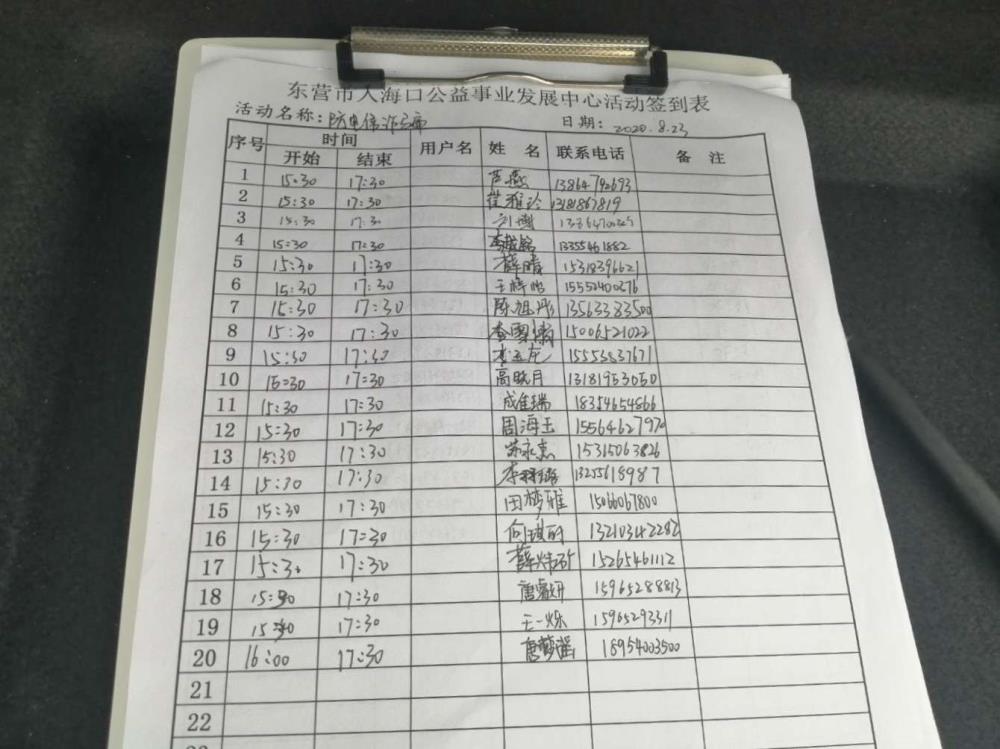 东营市入海口公益事业发展中心活动签到表
活动名称: 防电信诈骗 日期: 2020.8.23
序号 时间 用户名 姓 名 联系电话 备 注
开始 结束
1 15:30 17:30 芦燕
2 15:30 17:30 崔雅玲 13181867819
3 15:30 17:30 刘博
4 15:30 17:30 13355461882
5 15:30 17:30 薛晴 15318396621
6 15:30 17:30 15552400276
7 15:30 17:30 陈旭彤 13563383500
8 15:30 17:30 15006521022
9 15:30 17:30 15553837671
10 15:30 17:30 高晓月 13181953050
11 15:30 17:30 成佳瑞 18354654866
12 15:30 17:30 周海玉 15564627970
13 15:30 17:30 15315063826
14 15:30 17:30 13255618987
15 15:30 17:30 田梦雅 15066067800
16 15:30 17:30 13210342282
17 15:30 17:30 15265461112
18 17:30 唐睿妍 15965288813
19 17:30 王一烁 15965293311
20 16:00 17:30 唐梦瑶 18954003500
21
22